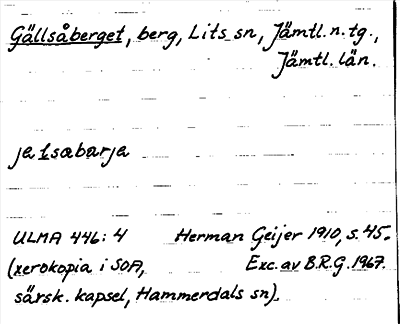 Gällsåberget, berg, Lits sn, Jämtl. n. tg.,
Jämtl. län.
jałsabarja
ULMA 446:4 Herman Geijer 1910, s. 45.
(xerokopia i SOA, Exc. av B.R.G. 1967.
särsk. kapsel, Hammerdals sn).